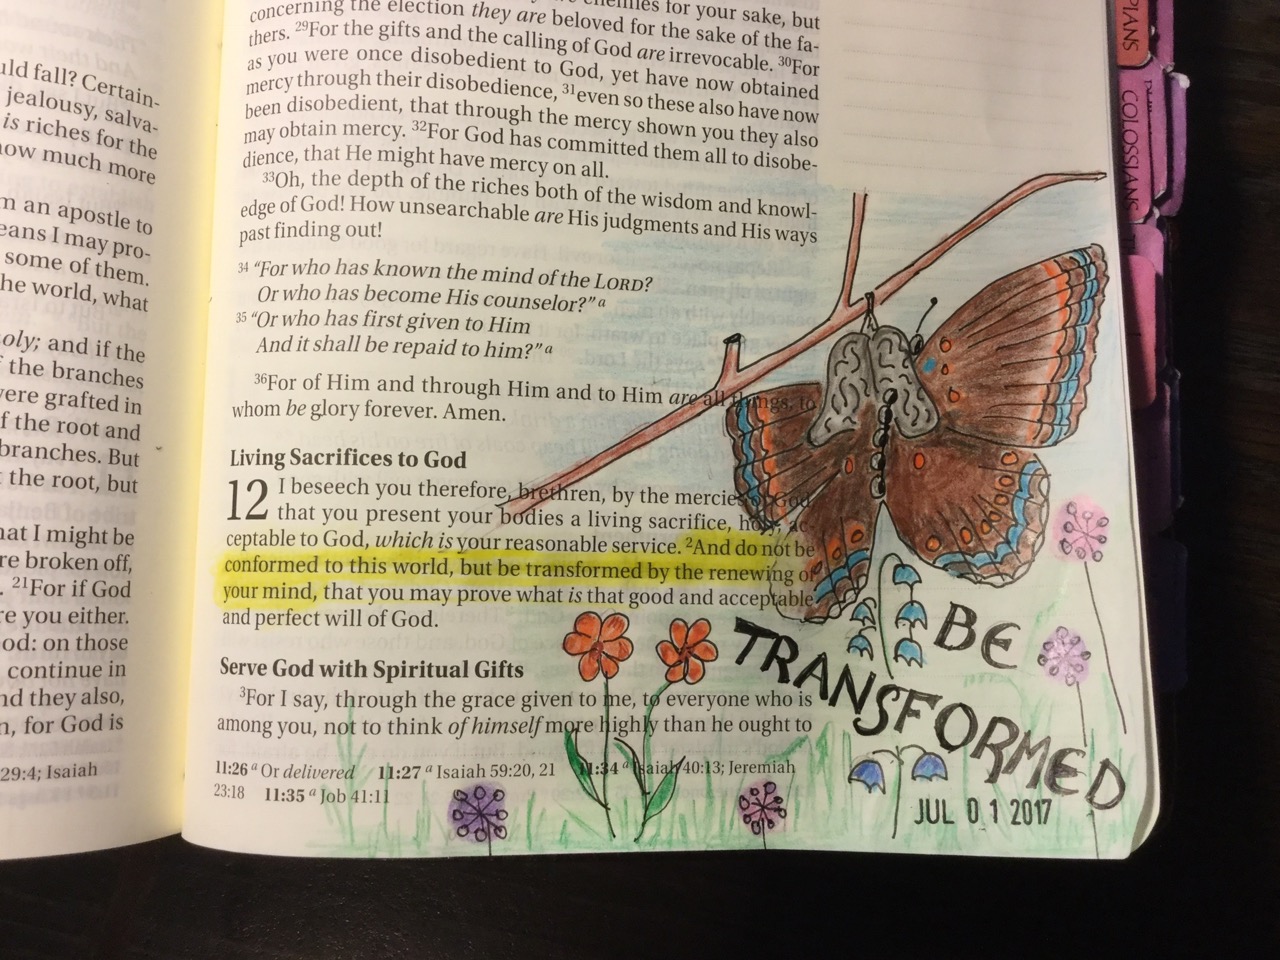 uld fall? Certain-
jealousy, salva-
is riches for the
how much more
m an apostle to
eans I may pro-
some of them.
he world, what
oly; and if the
the branches
vere grafted in
f the root and
branches. But
the root, but
hat I might be
re broken off,
. 21For if God
re you either.
od: on those
continue in
nd they also,
n, for God is
29:4; Isaiah
for your sake, but
concerning the election they are beloved for the sake of the fa-
thers. 29For the gifts and the calling of God are irrevocable. 30For
as you were once disobedient to God, yet have now obtained
mercy through their disobedience, 31even so these also have now
been disobedient, that through the mercy shown you they also
may obtain mercy. 32For God has committed them all to disobe-
dience, that He might have mercy on all.
33Oh, the depth of the riches both of the wisdom and knowl-
edge of God! How unsearchable are His judgments and His ways
past finding out!
34 “For who has known the mind of the LORD?
Or who has become His counselor?” a
35 “Or who has first given to Him
And it shall be repaid to him?” a
36For of Him and through Him and to Him are all things, to
whom be glory forever. Amen.
Living Sacrifices to God
12 I beseech you therefore, brethren, by the mercies of God,
that you present your bodies a living sacrifice, holy, ac-
ceptable to God, which is your reasonable service. 2And do not be
conformed to this world, but be transformed by the renewing of
your mind, that you may prove what is that good and acceptable
and perfect will of God.
Serve God with Spiritual Gifts
3For I say, through the grace given to me, to everyone who is
among you, not to think of himself more highly than he ought to
11:26 a Or delivered 11:27 a Isaiah 59:20, 21 11:34 a Isaiah 40:13; Jeremiah
23:18 11:35 a Job 41:11
BE
TRANSFORMED
JUL 01 2017
PIANS
COLOSSIANS